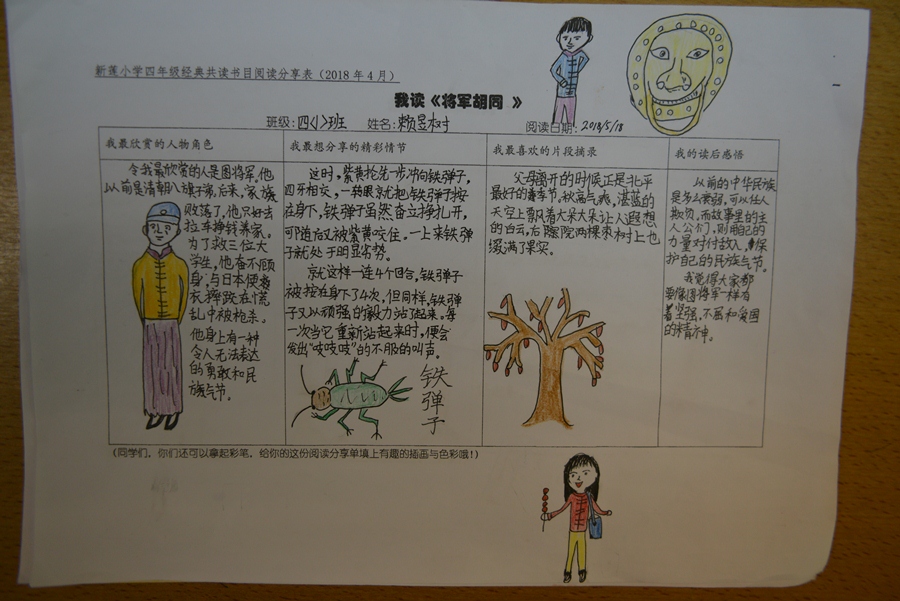 新莲小学四年级经典共读书目阅读分享表（2018年4月）
我读《将军胡同 》
班级：四〈1〉班 姓名：赖昱树 阅读日期：2018/5/18
我最欣赏的人物角色
令我最欣赏的人是图将军，他
以前是清朝八旗子弟，后来，家族
败落了，他只好去
拉车挣钱养家。
为了救三位大
学生，他奋不顾
身，与日本便
衣摔跤在慌
乱中被枪杀。
他身上有一种
令人无法表达
的勇敢和民
族气节。
我最想分享的精彩情节
这时，紫黄抢先一步冲向铁弹子，
四牙相交，一转眼就把铁弹子按
在身下，铁弹子虽然奋立挣扎开，
可随后又被紫黄咬住。一上来铁弹
子就处于明显劣势。
就这样一连4个回合，铁弹子
被按在身下了4次，但同样，铁弹
子又以顽强的毅力站了起来。每
一次当它重新站起来时，便会
发出“吱吱吱”的不服的叫声。
铁
弹
子
我最喜欢的片段摘录
父母离开的时候正是北平
最好的季节，秋高气爽，湛蓝的
天空上飘着大朵大朵让人遐想
的白云，后院两棵枣树上也
缀满了果实。
我的读后感悟
从前的中华民族
是多么衰弱，可以任人
欺负，而故事里的主
人公们，则用自己的
力量对付敌人，保
护自己的民族气节。
我觉得大家都
要像图将军一样有
着坚强、不屈和爱国
的精神。
（同学们，你们还可以拿起彩笔，给你的这份阅读分享单填上有趣的插画与色彩哦！）